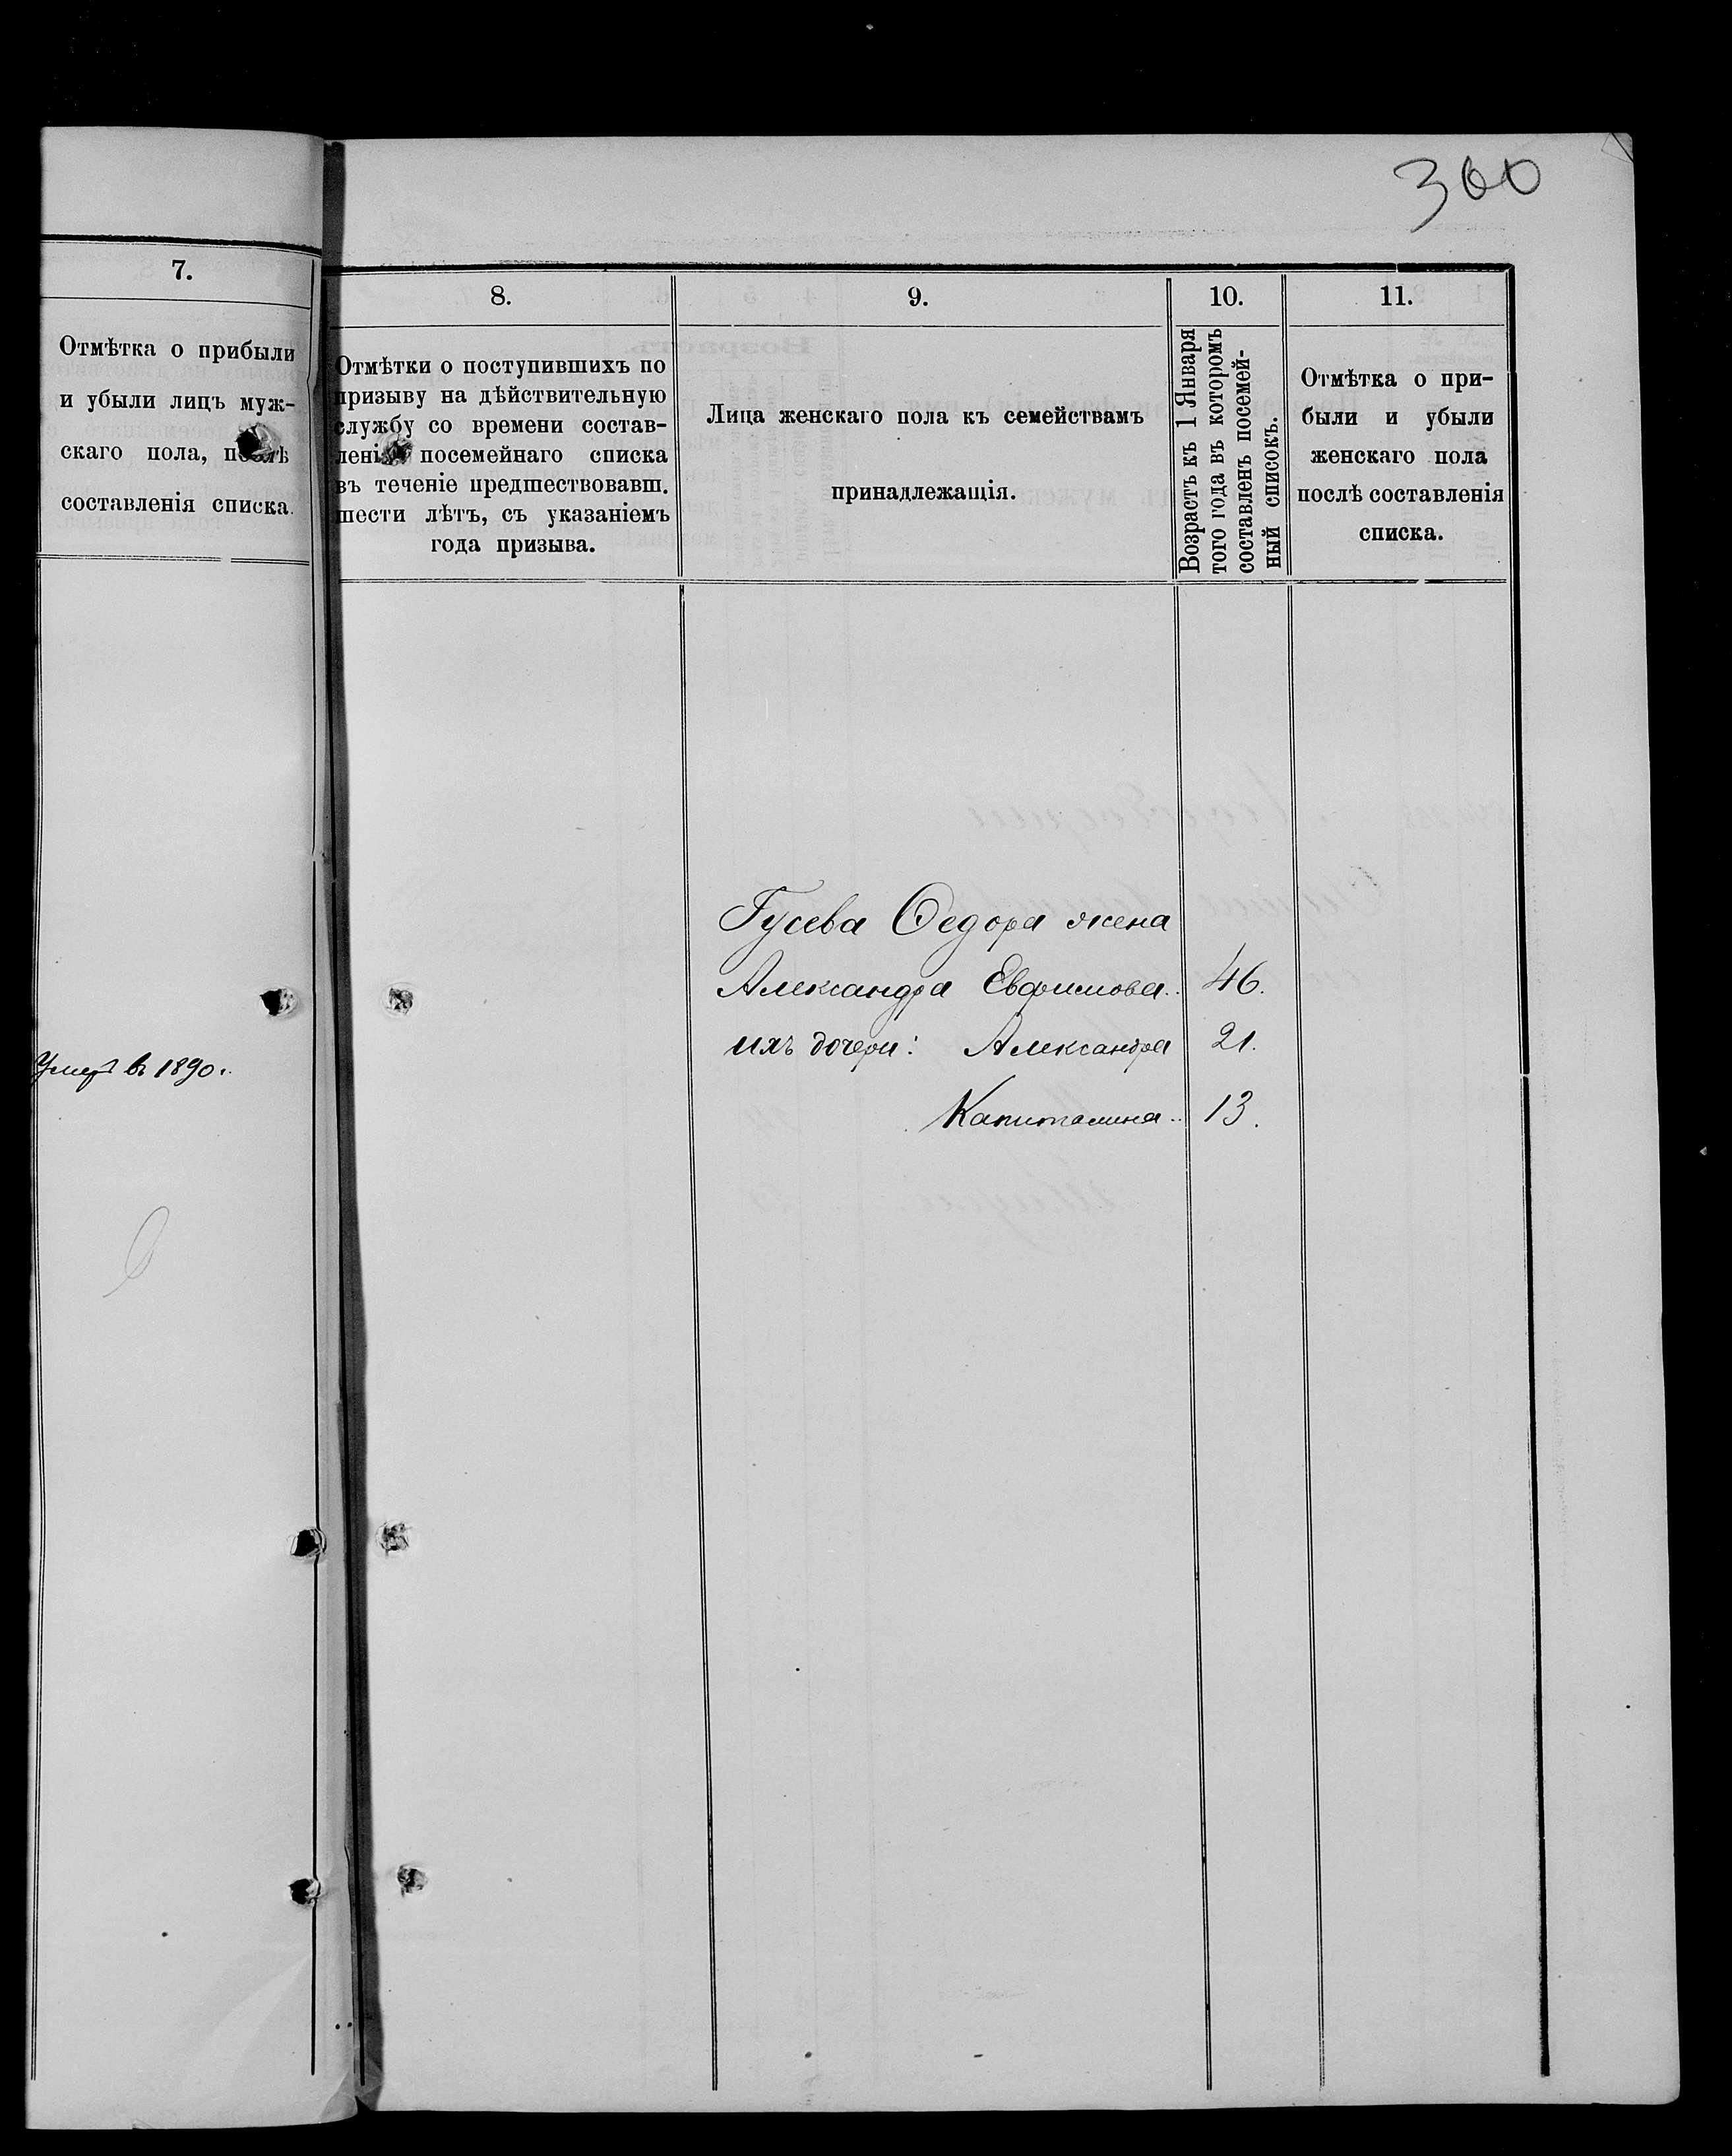 300
7.
Отмѣтка о прибыли
и убыли лицъ муж-
скаго пола, послѣ
составленія списка.
Умеръ въ 1890 г.
8.
Отмѣтки о поступившихъ по
призыву на дѣйствительную
службу со времени состав-
ленія посемейнаго списка
въ теченіе предшествовавш.
шести лѣтъ, съ указаніемъ
года призыва.
9.
Лица женскаго пола къ семействамъ
принадлежащія.
10.
Возрастъ къ 1 Января
того года въ которомъ
составленъ посемей-
ный списокъ.
11.
Отмѣтка о при-
были и убыли
женскаго пола
послѣ составленія
списка.
Гусева Ѳедора жена
Александра Евфимова 46.
ихъ дочери: Александра 21.
Капиталина 13.